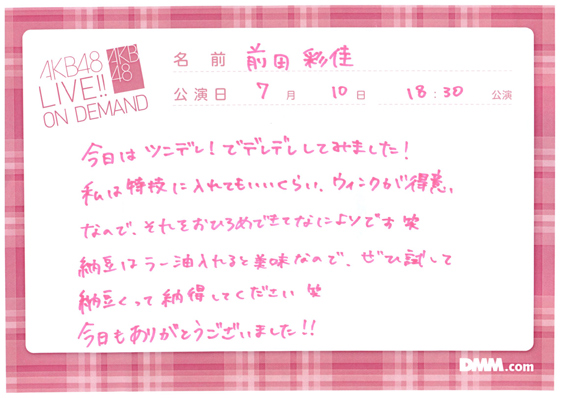 AKB48
LIVE!!
ON DEMAND
AKB
48
名前 前田 彩佳
公演日 7月 10日 18:30 公演
今日はツンデレ!でデレデレしてみました!
私は特技に入れてもいいくらい、ウィンクが得意、
なので、それをおひろめできてなによりです 笑
納豆はラー油入れると美味なので、ぜひ試して
納豆くって納得してください 笑
今日もありがとうございました!!
DMM.com